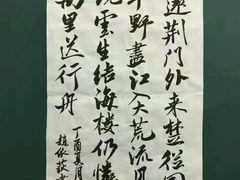 遠荊門外来楚從國
平野盡江入大荒流月
雲生結海樓仍憐
萬里送行舟
丁酉夏月
趙依荻